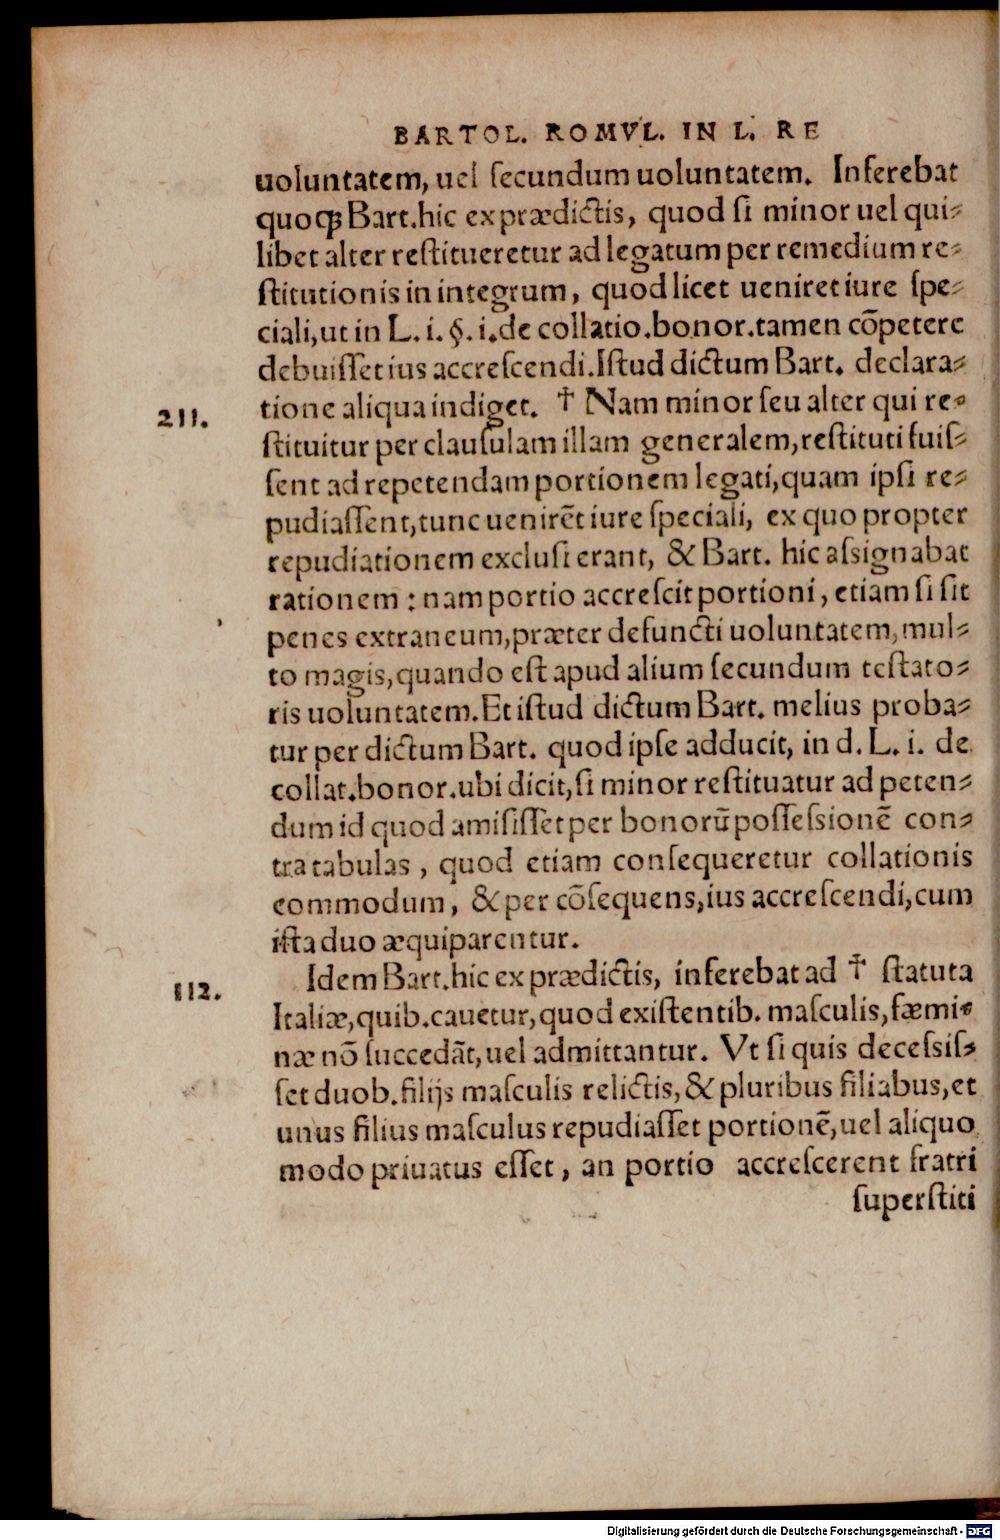 BARTOL. ROMVL. IN L. RE
uoluntatem, uel ſecundum uoluntatem. Inferebat
quoqȝ Bart. hic ex prædictis, quod ſi minor uel qui-
libet alter reſtitueretur ad legatum per remedium re-
ſtitutionis in integrum, quod licet ueniret iure ſpe-
ciali, ut in L. i. §. i. de collatio. bonor. tamen cõpetere
debuiſſet ius accreſcendi. Iſtud dictum Bart. declara-
211. tione aliqua indiget. † Nam minor ſeu alter qui re-
ſtituitur per clauſulam illam generalem, reſtituti fuiſ-
ſent ad repetendam portionem legati, quam ipſi re-
pudiaſſent, tunc uenirẽt iure ſpeciali, ex quo propter
repudiationem excluſi erant, & Bart. hic aſsignabat
rationem : nam portio accreſcit portioni, etiam ſi ſit
penes extraneum, præter defuncti uoluntatem, mul-
to magis, quando eſt apud alium ſecundum teſtato-
ris uoluntatem. Et iſtud dictum Bart. melius proba-
tur per dictum Bart. quod ipſe adducit, in d. L. i. de
collat. bonor. ubi dicit, ſi minor reſtituatur ad peten-
dum id quod amiſiſſet per bonorũ poſſeſsionẽ con-
tra tabulas, quod etiam conſequeretur collationis
commodum, & per cõſequens, ius accreſcendi, cum
iſta duo æquiparentur.
112. Idem Bart. hic ex prædictis, inferebat ad † ſtatuta
Italiæ, quib. cauetur, quod exiſtentib. maſculis, fæmi-
næ nõ ſuccedãt, uel admittantur. Vt ſi quis deceſsiſ-
ſet duob. filijs maſculis relictis, & pluribus filiabus, et
unus filius maſculus repudiaſſet portionẽ, uel aliquo
modo priuatus eſſet, an portio accreſcerent fratri
ſuperſtiti
Digitalisierung gefördert durch die Deutsche Forschungsgemeinschaft - DFG